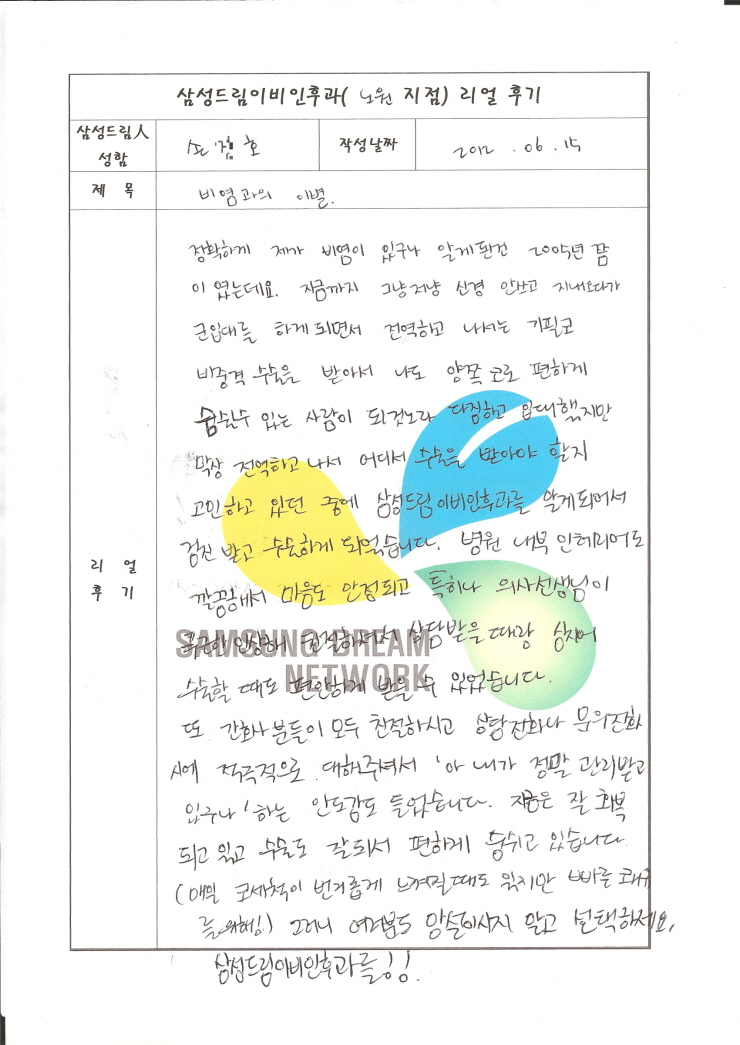 삼성드림이비인후과( 노원 지점) 리얼 후기
삼성드림人
성함
호
작성날짜
2012 . 06 . 15
제 목
비염과의 이별.
리 얼
후 기
정확하게 제가 비염이 있구나 알게된건 2005년 쯤
이 였는데요. 지금까지 그냥저냥 신경 안쓰고 지내오다가
군입대를 하게 되면서 전역하고 나서는 기필코
비중격 수술을 받아서 나도 양쪽 코로 편하게
숨쉴수 있는 사람이 되겠노라 다짐하고 입대했지만
막상 전역하고 나서 어디서 수술을 받아야 할지
고민하고 있던 중에 삼성드림이비인후과를 알게되어서
검진 받고 수술하게 되었습니다. 병원 내부 인테리어도
깔끔해서 마음도 안정되고 특히나 의사선생님이
친절하셔서 상담받을 때랑 심지어
수술할 때도 편안하게 받을 수 있었습니다.
SAMSUNG DREAM
NETWORK
또 간호사분들이 모두 친절하시고 상담전화나 문의전화
시에 적극적으로 대해주셔서 '아 내가 정말 관리받고
있구나' 하는 안도감도 들었습니다. 지금은 잘 회복
되고 있고 수술도 잘되서 편하게 숨쉬고 있습니다.
(매일 코세척이 번거롭게 느껴질때도 있지만 빠른 쾌유
를 위해!) 그러니 여러분도 망설이시지 말고 선택하세요,
삼성드림이비인후과를!!